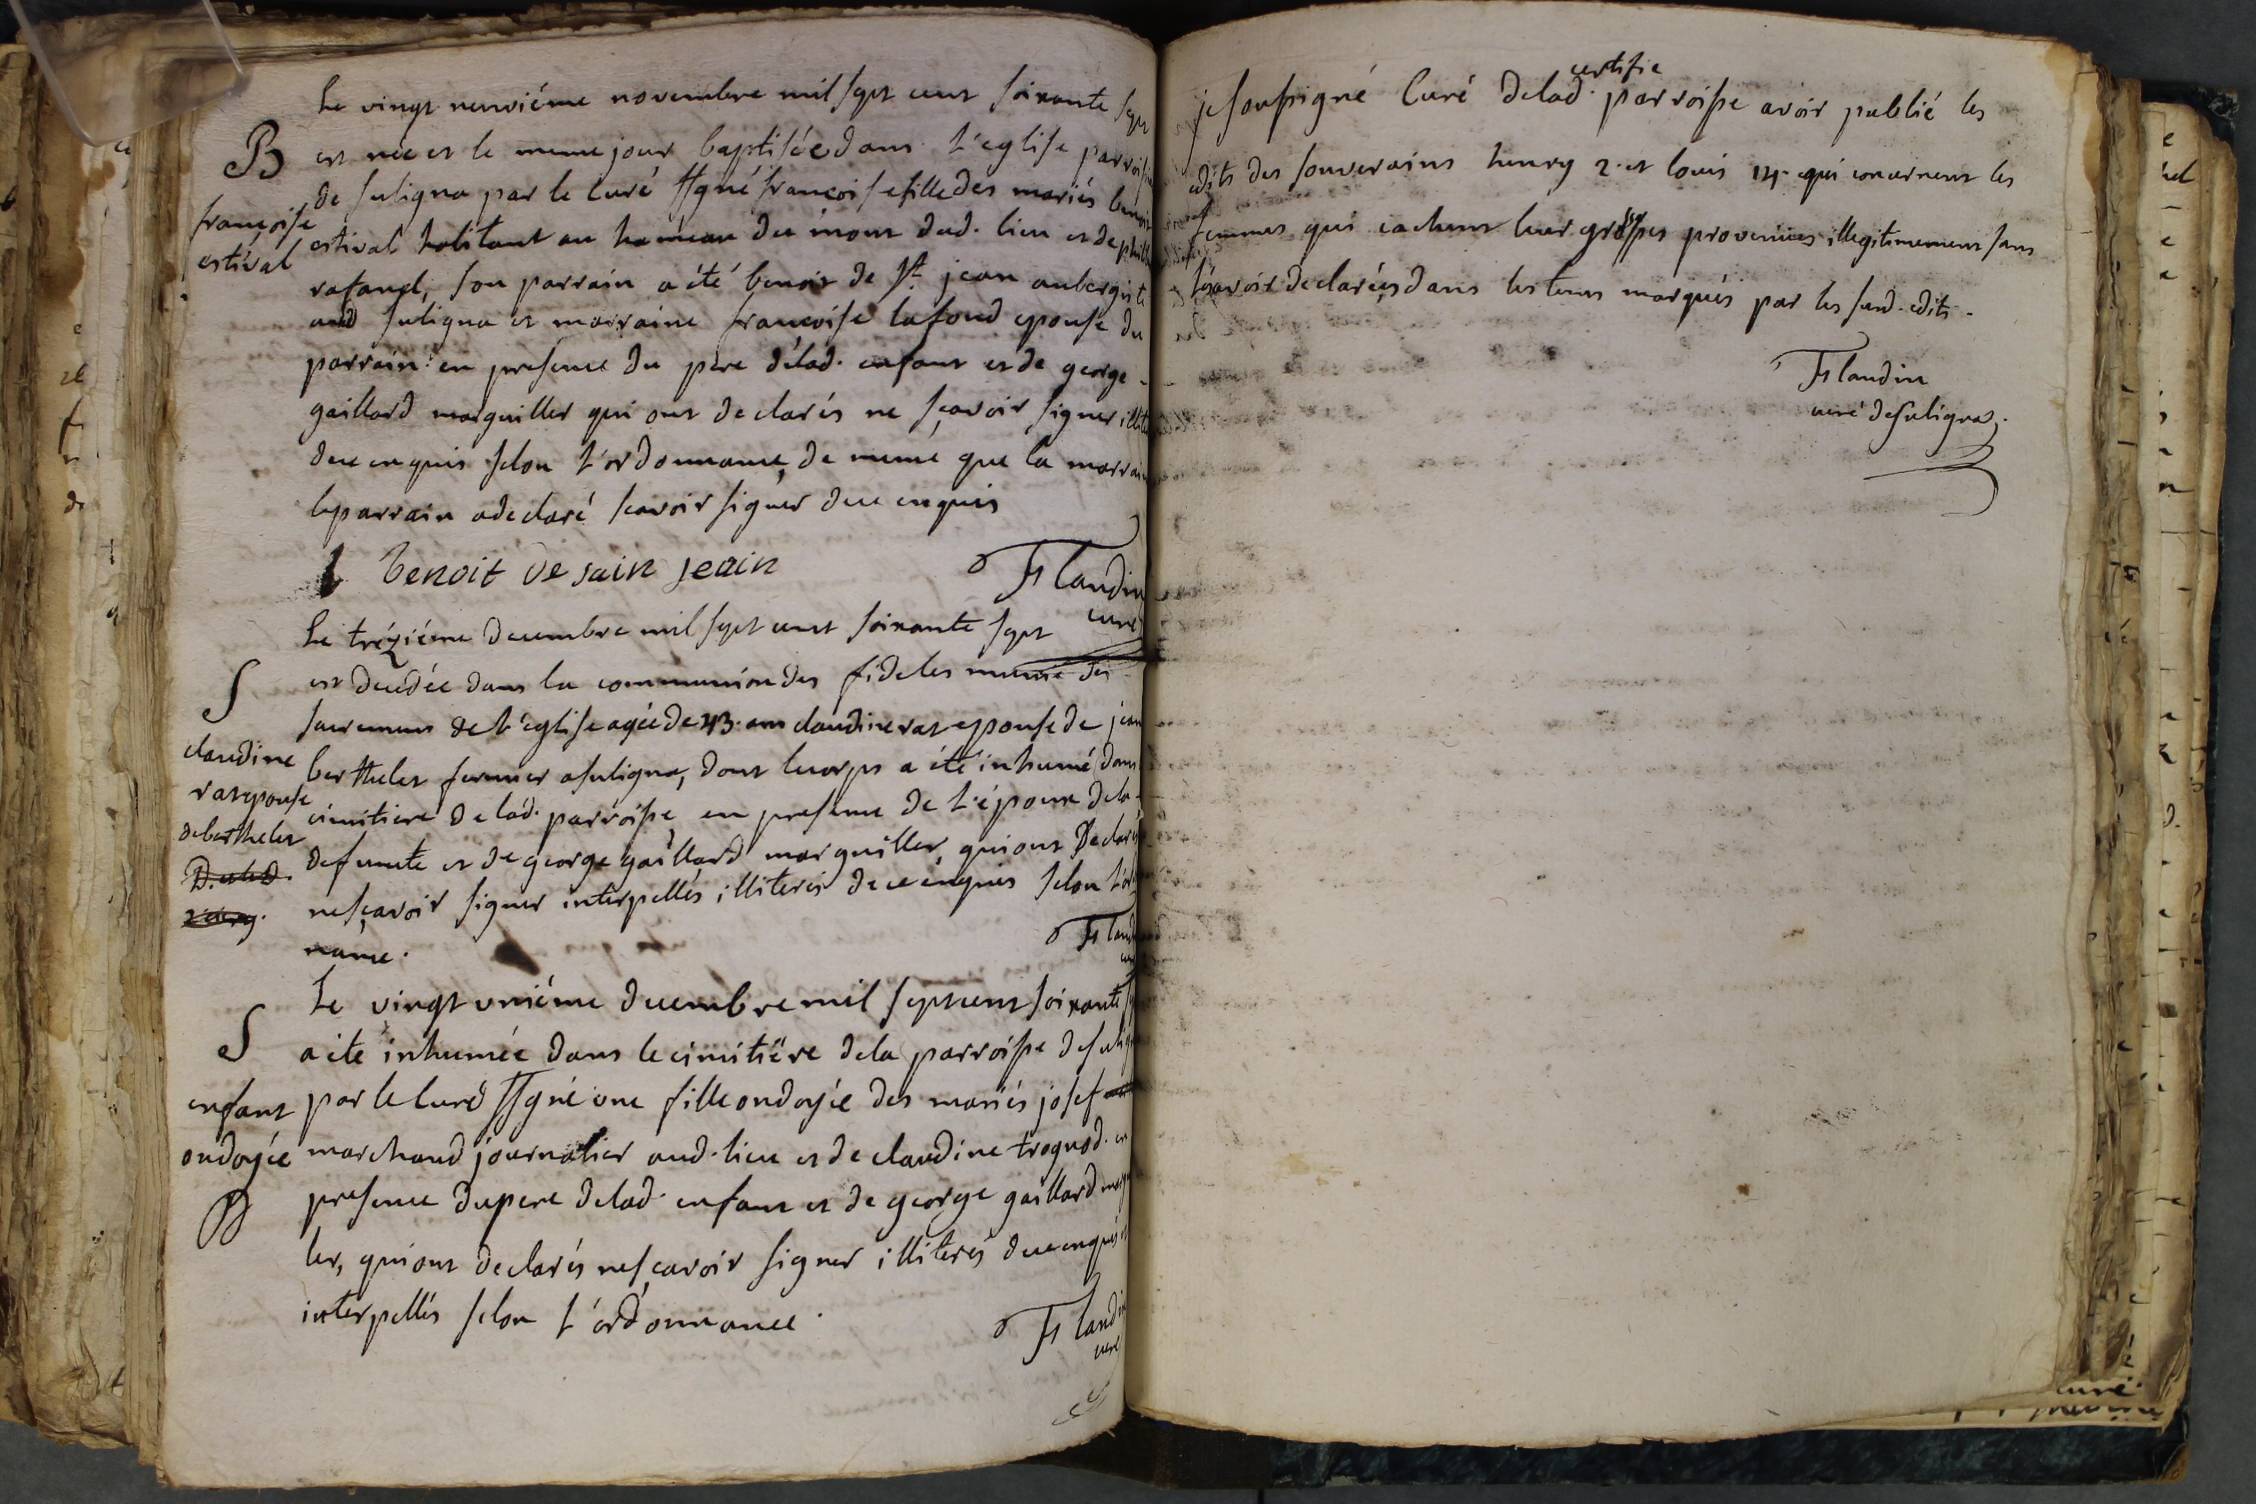 Le vingt neuviéme novembre mil sept cent soixante sept
B
est née et le meme jour baptisée dans l'eglise parroisi
de suligna par le Curé ssgné francoise fille des mariés benoit
françoise
estival
estival habitant au hameau du mont dud. lieu et de
rafand, son parrain a été benoit de St. jean aubergiste
aud suligna et marraine francoise lafond epouse du
parrain: en presence du pere délad. enfant et de george
gaillard marguiller qui ont declarés ne sçavoir signer
de ce enquis selon l'ordonnance, de meme que la marrai
le parrain a declaré scavoir signer de ce enquis
benoit de sain jeain
Flandin
curé
Le tréziéme decembre mil sept cent soixante sept
S
est decedée dans la communion des fideles munie des
sacremens de l'eglise agée de 43. ans claudine rat epouse de jean
claudine
rat epouse
de berthelet
berthelet fermier a suligna, dont le corps a été inhumé dans
cimitiere de lad. parroisse, en presence de l'époux de la
defunte et de george gaillard marguiller, qui ont declaré
ne sçavoir signer interpellés illiterés de ce enquis selon l'or
nance.
Fland
Le vingt uniéme decembre mil sept cent soixante
S
a été inhumée dans le cimitiére de la parroisse de sulig
enfant
ondoyée
par le Curé ssgné une fille ondoyée des mariés josef
marchand journalier aud. lieu et de claudine trognod. en
presence du pere de lad. enfant et de george gaillard
ler, qui ont declarés ne sçavoir signer illiterés de ce enquis
interpellés selon l'ordonnance.
Flandin
curé
je soussigné Curé de lad. certifie parroisse avoir publié les
edits des souverains henry 2. et louis 14. qui concernent les
femmes qui cachent leur grosses provenües illegitimement sans
l'avoir declarées dans les tems marqués par les susd. edits.
Flandin
curé de suligna.